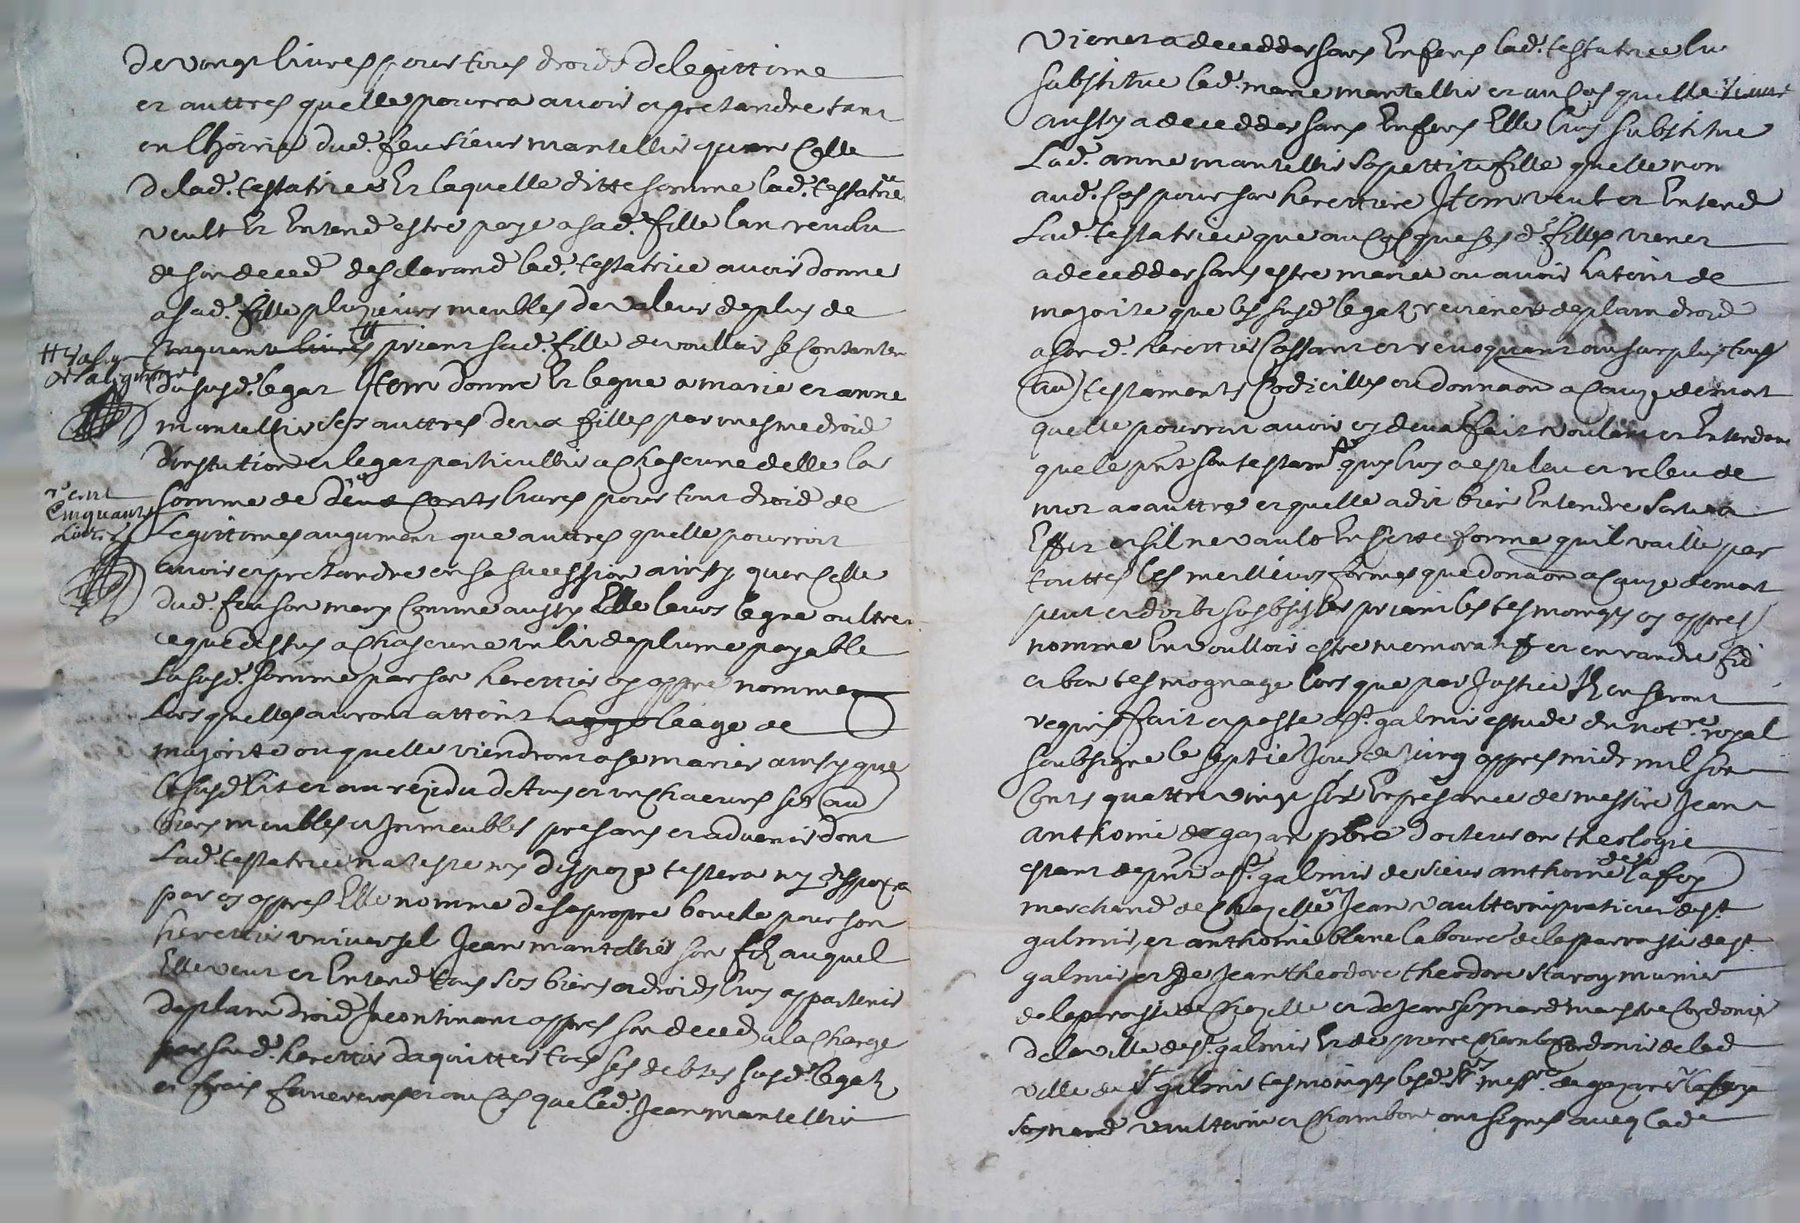 De vingt livres pour tous droidz de legittime
et auttres quelle pourra avoir et pretandre tant
en lhoirie dud. feu sieur mantellier quen Celle
de lad. testatrice Et laquelle ditte somme lad. testatrice
veult Et Entend estre paye a sad. fille lan revolu
de son deced desclarand lad. testatrice avoir donne
a sad. fille pluzieurs meubles de valeur de plus de
Cinquante livres priant sad. fille de voulloir se Contanter
du susd. legat Item donne Et legue a marie et anne
mantellier ses auttres deux filles par mesme droid
dinstution et legat particullier a chascune delle la
somme de deux Cents livres pour tout droid de
Legittimes augument que auttres quelle pourroit
avoir et pretandre en sa sucession ainsy quen Celle
dud. feu son mary Comme aussy Elle leurs legue oultre
ce que dessus a chascune un lit de plume payable
La susd. somme par son herettier cy appres nomme
Lors quelles auront attaint laage de
majorite ou quelle viendront a se marier ainsy que
le susd. lit et au rezidu de tous et un chacuns ses au
biens meubles et Inmeubles presans et advenir dont
Lad. testatrice na teste ny dispoze testera ny dispozera
par cy appres Elle nomme de sa propre bouche pour son
herettier universel Jean mantellier son filz auquel
Elle veut et Entend tous ses biens et droids luy appartenir
de plain droid Incontinant appres son deced a la Charge
par sond. herettier daquitter tous ses debtes susd. legatz
et frais funeraux et au Cas que led. Jean mantellier
Cinquante
Livres
Viener a decedder sans Enfens lad. testatrice luy
substitue lad. marie mantellier et au Cas quelle vienne
aussy a decedder sans Enfens Elle luy substitue
Lad. anne mantellier sa pettite fille quelle nom
aud. Cas pour son herettiere Item veult et Entend
Lad. testatrice que au Cas que ses d. filles viener
a decedder sans estre maries ou avoir lataint de
majorite que les susd. legatz revienet de plain droid
a sond. herettier Cassant et revoquant au surplus tous
au) testaments Codicilles ou donnaon a Cauze de mort
quelle pourroit avoir cy devant fait voulant et Entendant
que le pnt son testamt quy luy a este leu et releu de
mot a auttre et quelle a dit bien Entendre sorte a
Effet et sil ne vault En sette forme quil vaille par
touttes les meilleurs formes que donnaon a Cauze de mort
peut et doibt subsister priant les tesmoingtz cy appres
nomme En voulloir estre memoratif et en randre fid
et bon tesmognage lors que par Justice Ilz en seront
requis fait et passe a St. galmier estude du notre royal
soubsigne le septie Jour de Juing appres midy mil six
Cents quattre vingt six En presance de messire Jean
anthoine de gazan pbre docteur en theologie
estant de pnt a St. galmier de sieur anthoine de la foy
marchand de Chazelle Jean vaulterin praticien de St.
galmier et anthoine blanc laboure de la parroisse de St.
galmier et de Jean theodore theodore staron munier
de la parroisse de Chazelle et de Jean soynard maistre Cordonier
de la ville de St. galmier Et de pierre Chambon Cordonier de lad
ville de St galmier tesmoingtz lesd. Srs messr. de gazan
soynard vaulterin et Chambon ont signes aveq lad